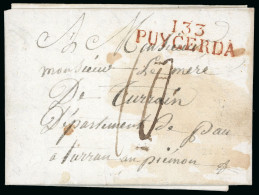 133
PUYCERDA
A Monsieur
monsieur Lemere
De Turrain
Département de pau
a turrau au piemon